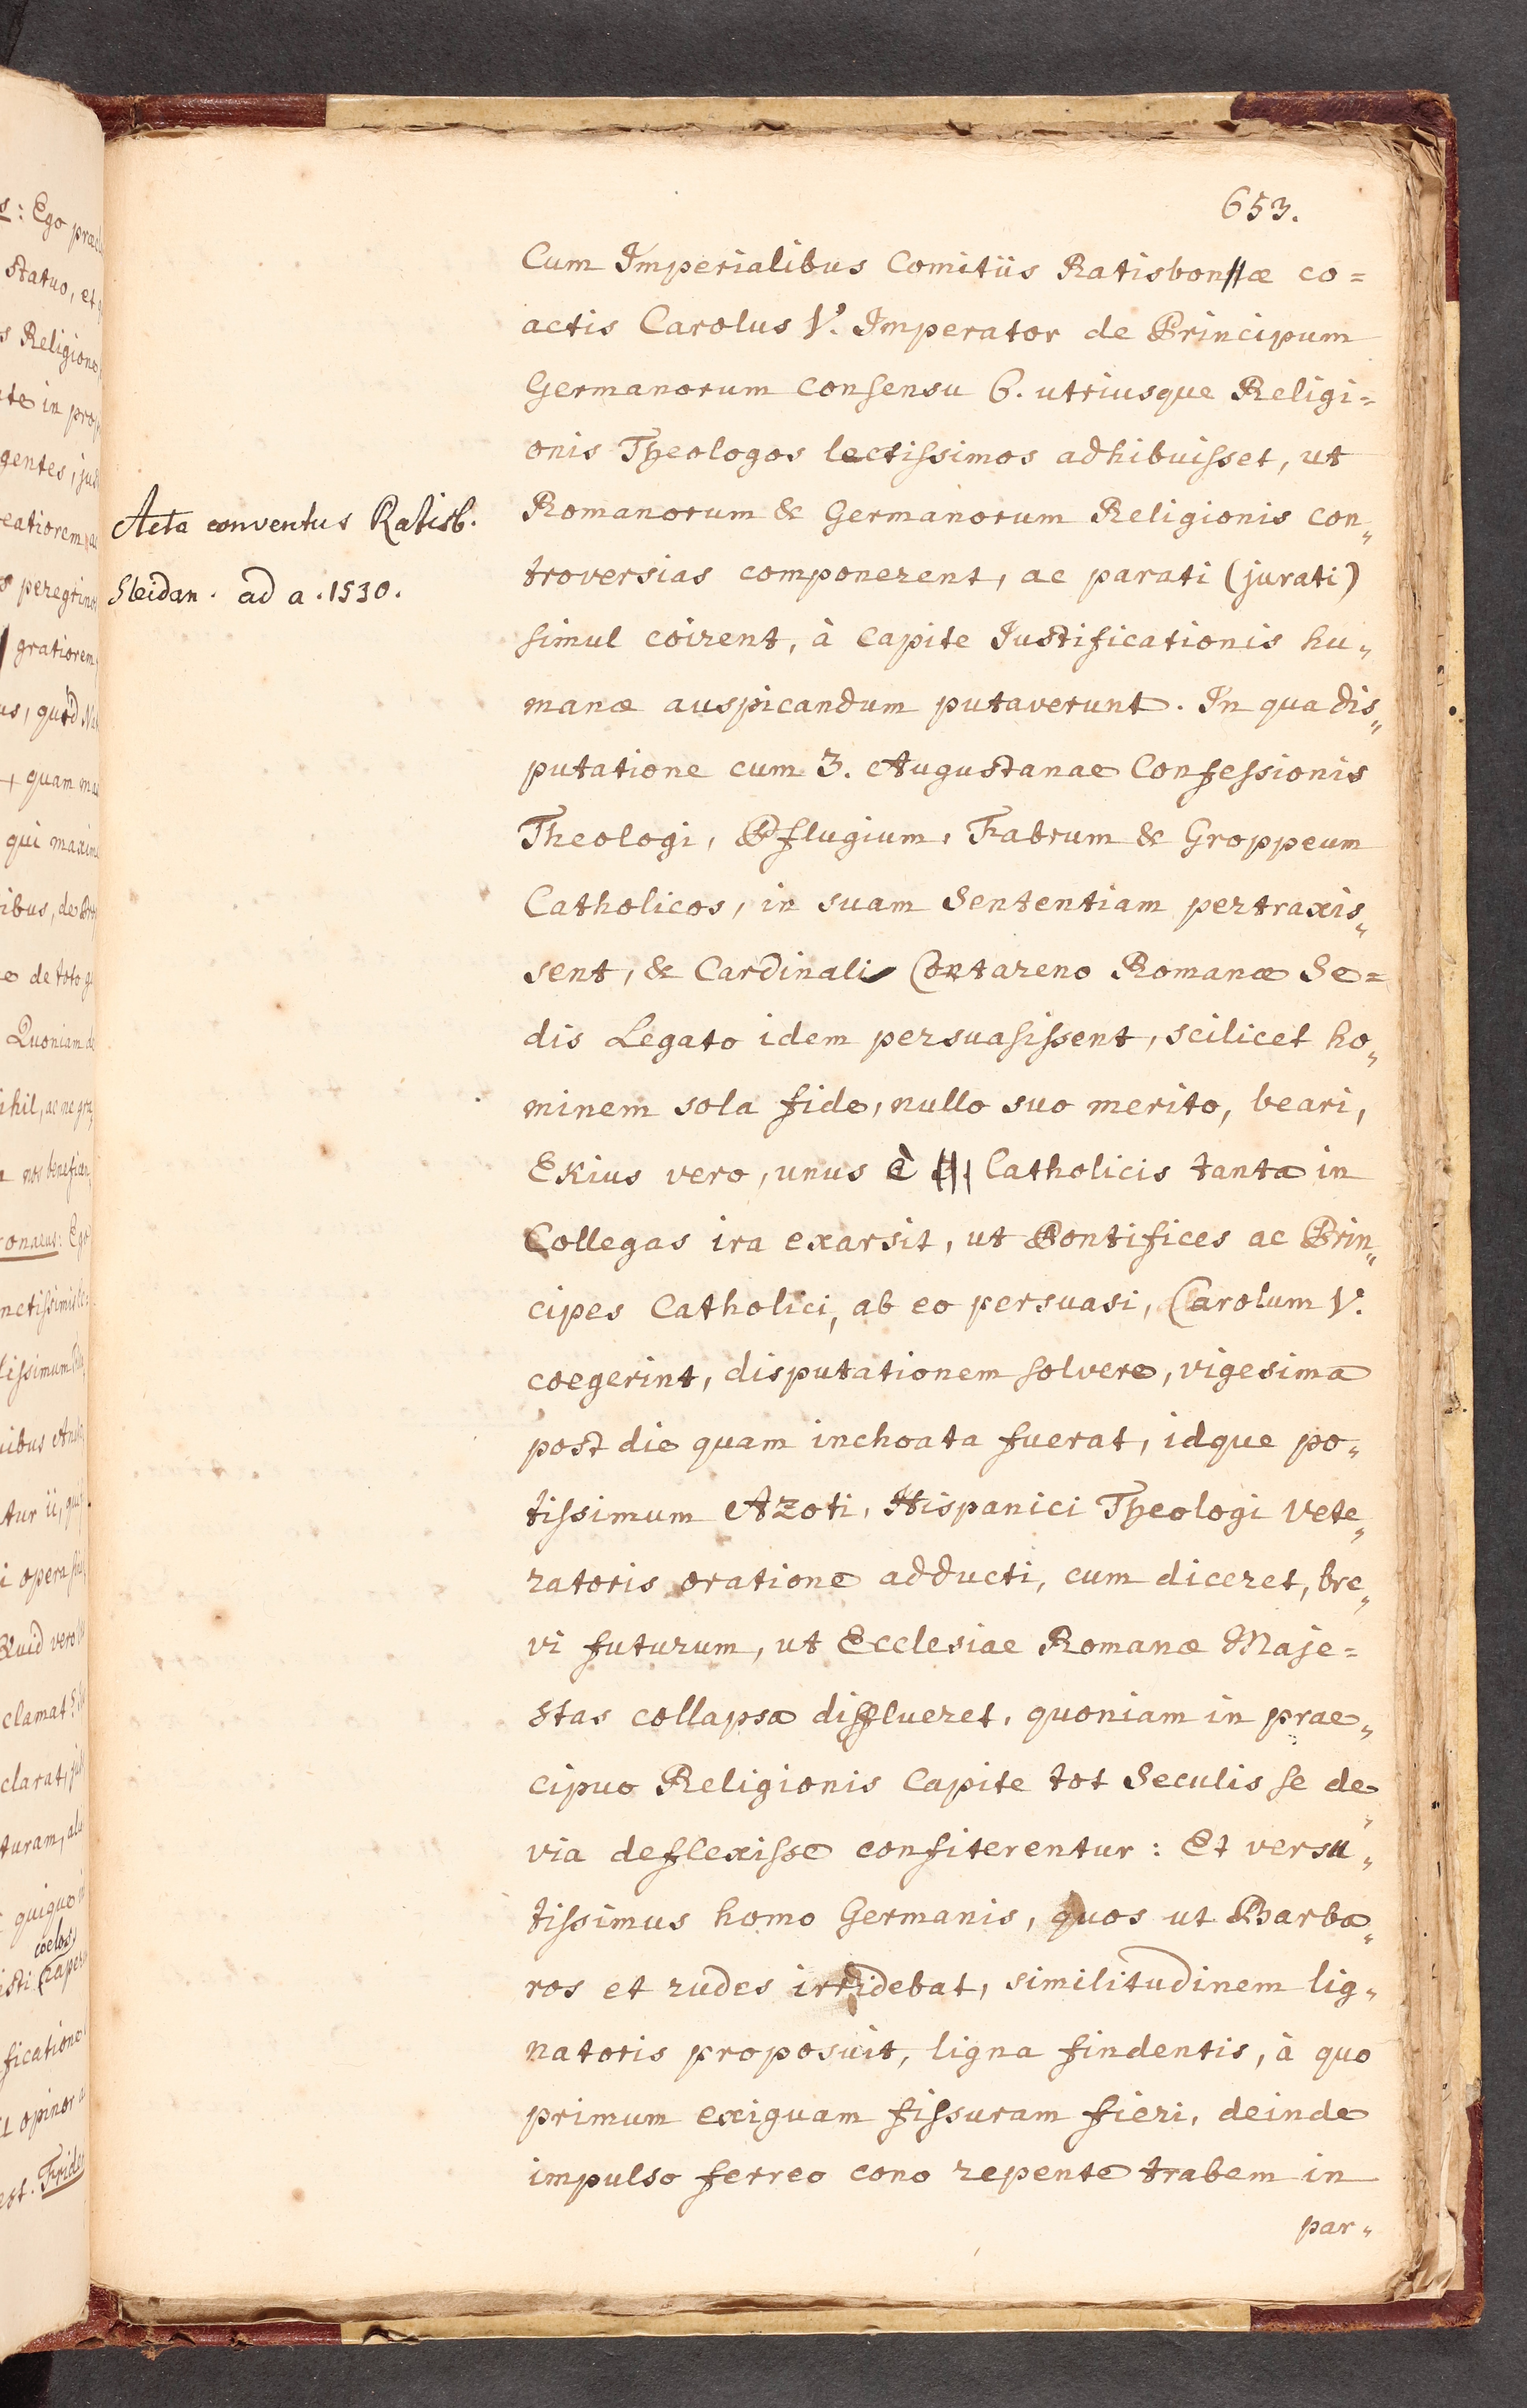 653.
Cum Imperialibus Comitiis Ratisbonæ co=
actis Carolus V. Imperator de Principum
Germanorum consensu 6. utriusque Religi=
onis Theologos lectissimos adhibuisset, ut
Romanorum & Germanorum Religionis con„
troversias componerent, ac parati (jurati)
simul coirent, à capite Iustificationis hu„
manæ auspicandum putaverunt. In qua dis„
putatione cum 3. Augustanae Confessionis
Theologi, Pflugium, Fabrum & Groppeum
Catholicos, in suam Sententiam pertraxis„
sent, & Cardinali Contareno Romanæ Se=
dis Legato idem persuasissent, scilicet ho„
minem sola fide, nullo suo merito, beari,
Ekius vero, unus è Catholicis tanta in
Collegas ira exarsit, ut Pontifices ac Prin„
cipes Catholici, ab eo persuasi, Carolum V.
coegerint, disputationem solvere, vigesima
post die quam inchoata fuerat, idque po„
tissimum Azoti, Hispanici Theologi vete„
ratoris oratione adducti, cum diceret, bre„
vi futurum, ut Ecclesiae Romanæ Maje=
stas collapsa difflueret, quoniam in prae„
cipuo Religionis Capite tot Seculis se de
via deflexisse confiterentur: Et versu„
tissimus homo Germanis, quos ut Barba„
ros et rudes irridebat, similitudinem lig„
natoris proposuit, ligna findentis, à quo
primum exiguam fissuram fieri, deinde
impulso ferreo cono repente trabem in
par„
Acta conventus Ratisb.
Sleidan. ad a. 1530.